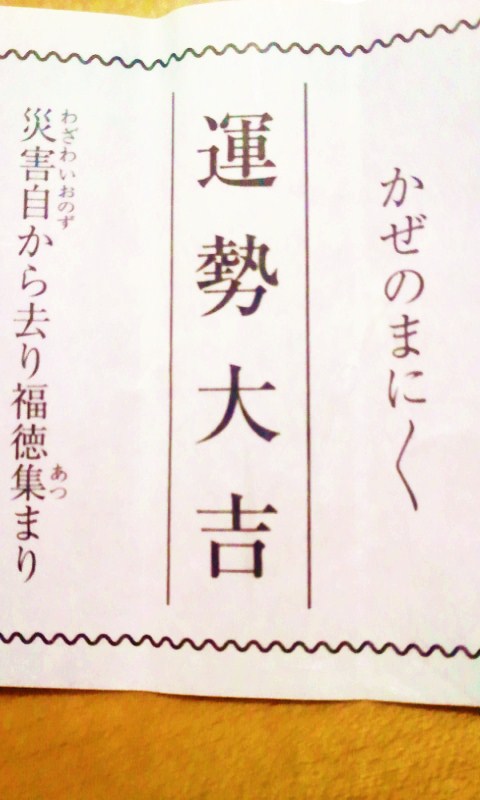 かぜのまに〱
運勢大吉
災害自から去り福徳集まり
わざわいおのず
あつ